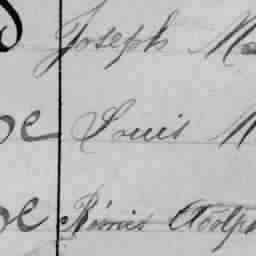 Joseph M
Louis M
Rémis Adolph